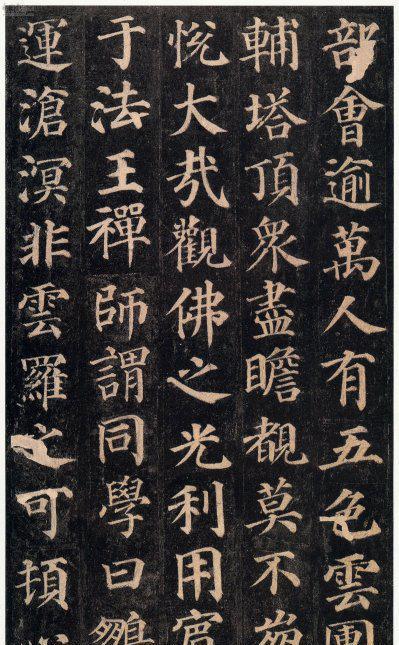 部會逾萬人有五色雲
輔塔頂眾盡瞻覩莫不
悅大哉觀佛之光利用
于法王禪師謂同學曰
運滄溟非雲羅之可頓